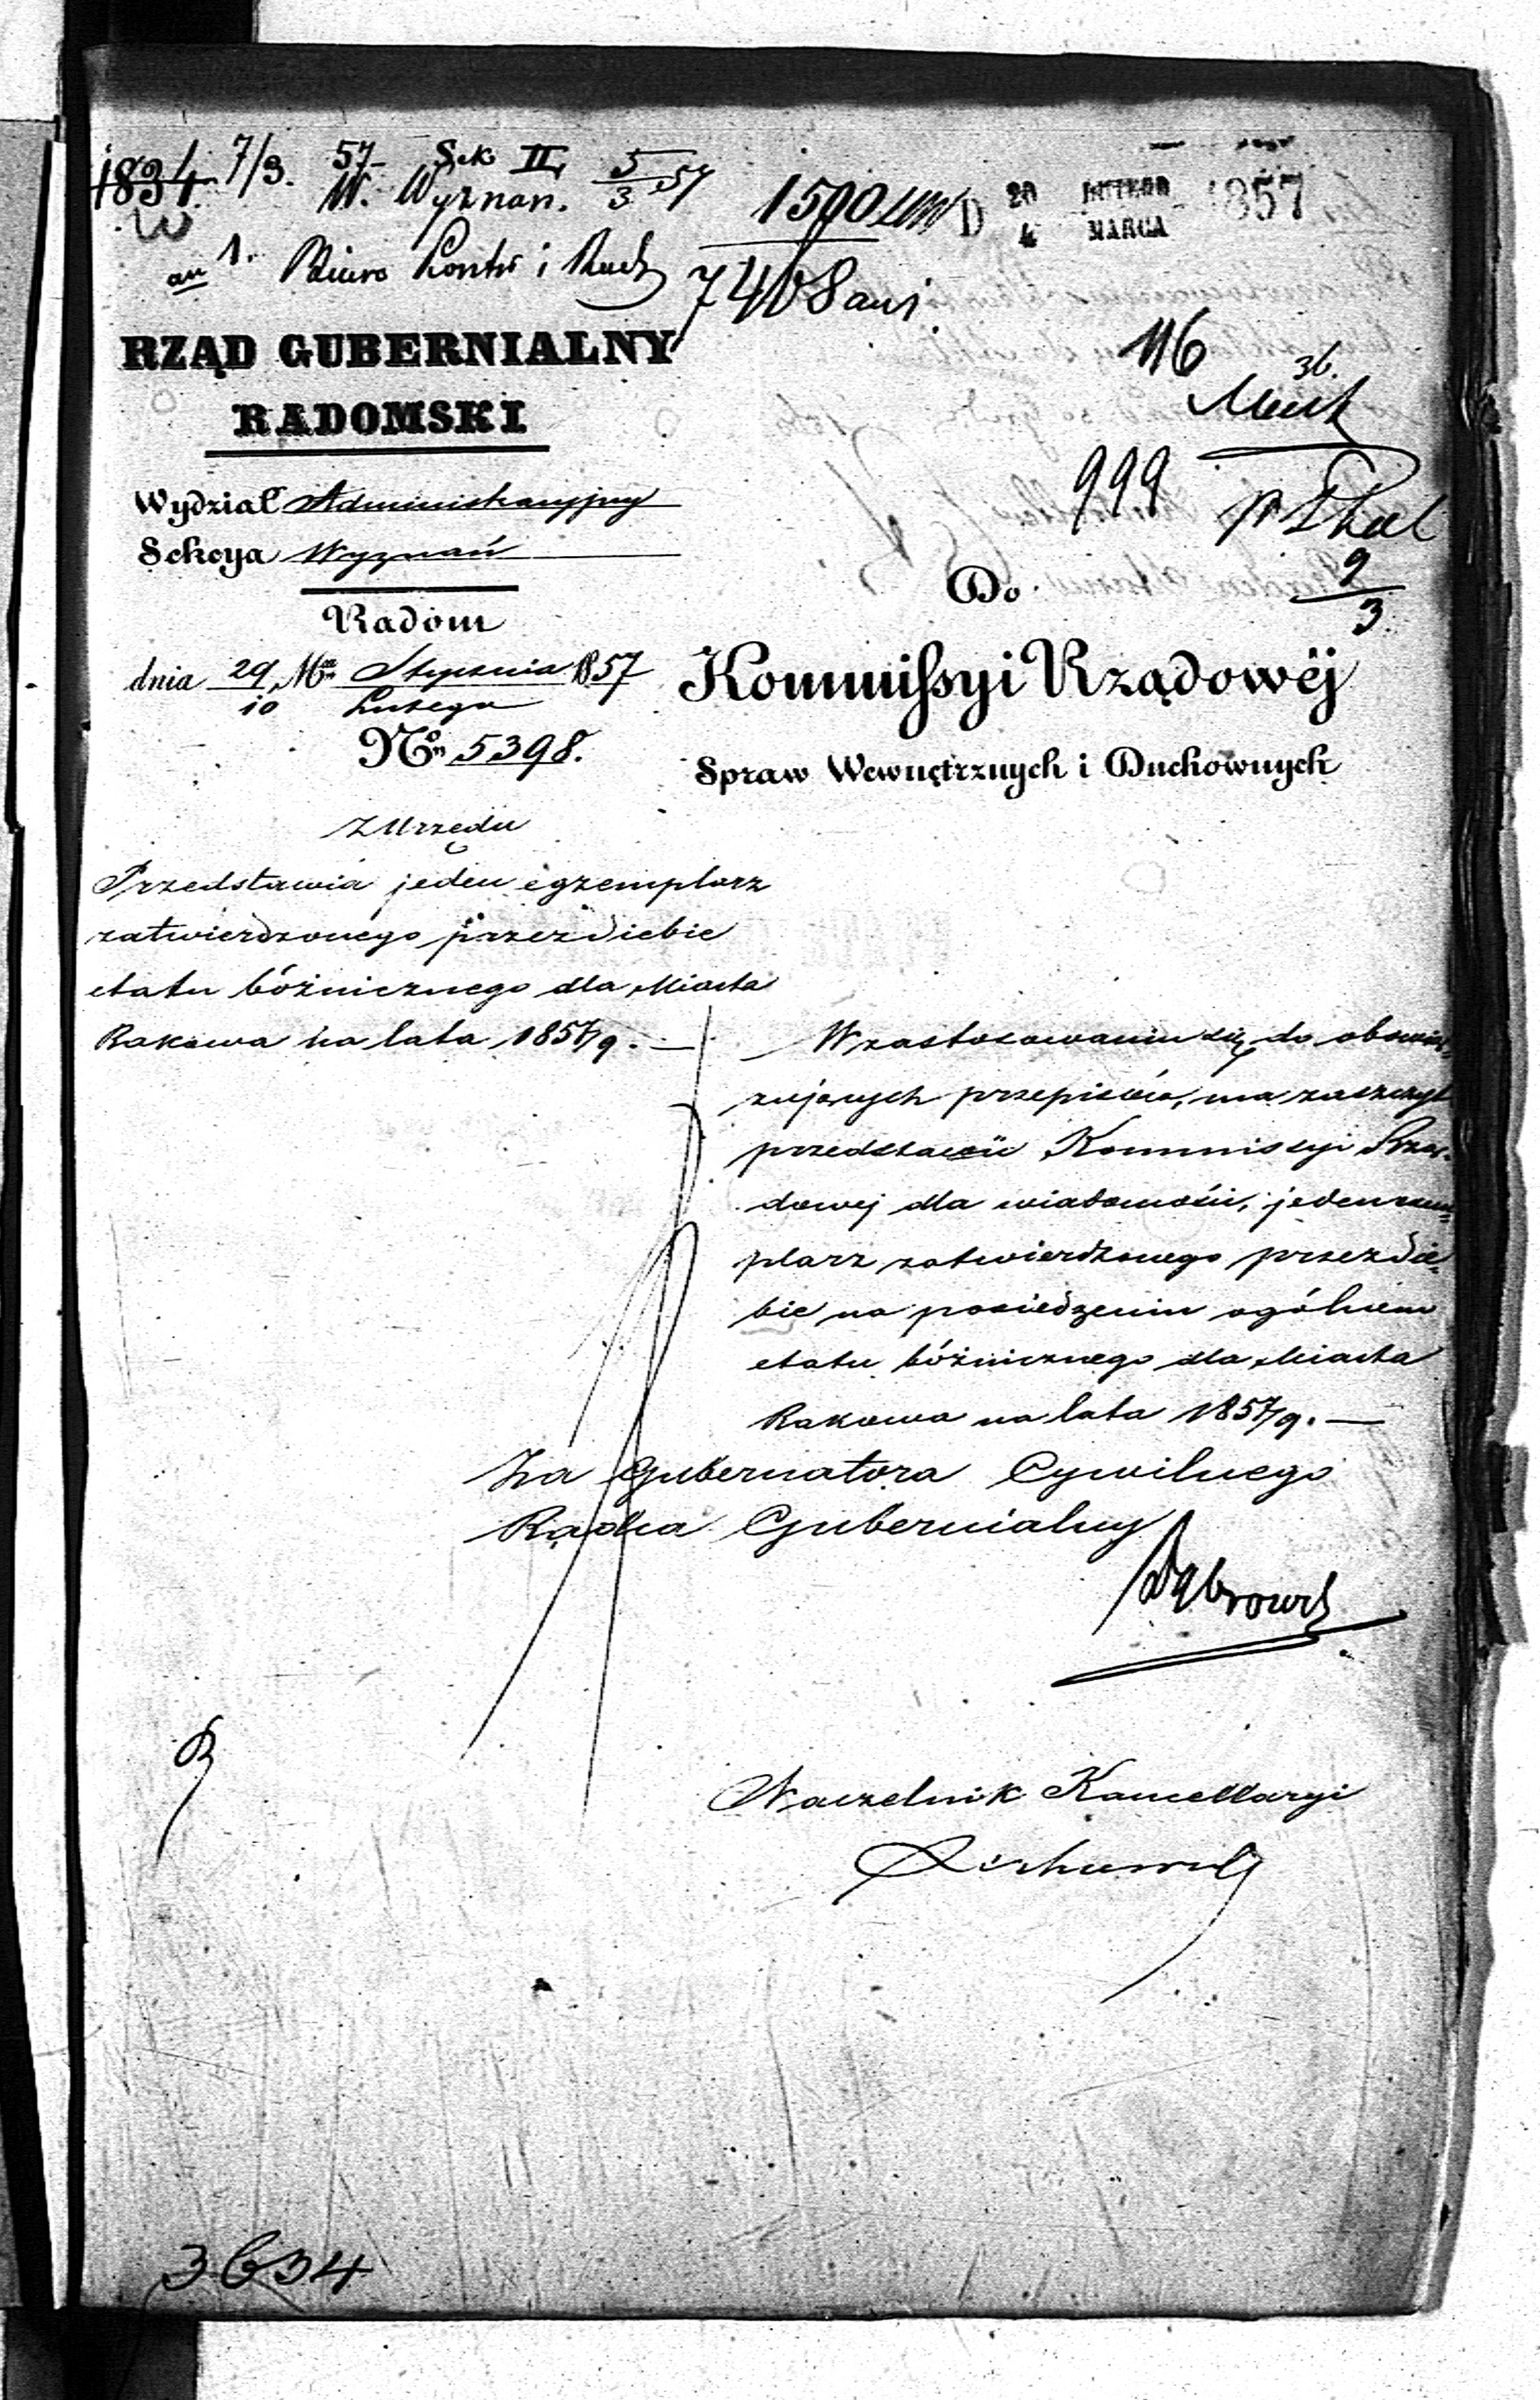 1834 7/3. 57 Sek II, 5/3 57
W. Wyznan.
1500
D 20 LUTEGO 4 MARCA 1857
an 1. Biuro Kontr i Rach
7408
RZĄD GUBERNIALNY
RADOMSKI
116
36.
999
9/3
Wydział Administracyjny
Sekcya Wyznań
Radom
dnia 29/10 Mca Stycznia/Lutego 1857
No 5398.
Do
Kommissyi Rządowéj
Spraw Wewnętrznych i Duchownych
Z Urzędu
Przedstawia jeden egzemplarz
zatwierdzonego przez siebie
etatu bóżnicznego dla Miasta
Rakowa na lata 1857/9. —
W zastosowaniu się do obowią-
zujących przepisów, ma zaszczyt
przedstawić Kommissyi Rzą-
dowej dla wiadomości, jeden exem-
plarz zatwierdzonego przez sie-
bie na posiedzeniu ogólnem
etatu bóżnicznego dla Miasta
Rakowa na lata 1857/9. —
Za Gubernatora Cywilnego
Radca Gubernialny
Dąbrowski
Naczelnik Kancellaryi
3634